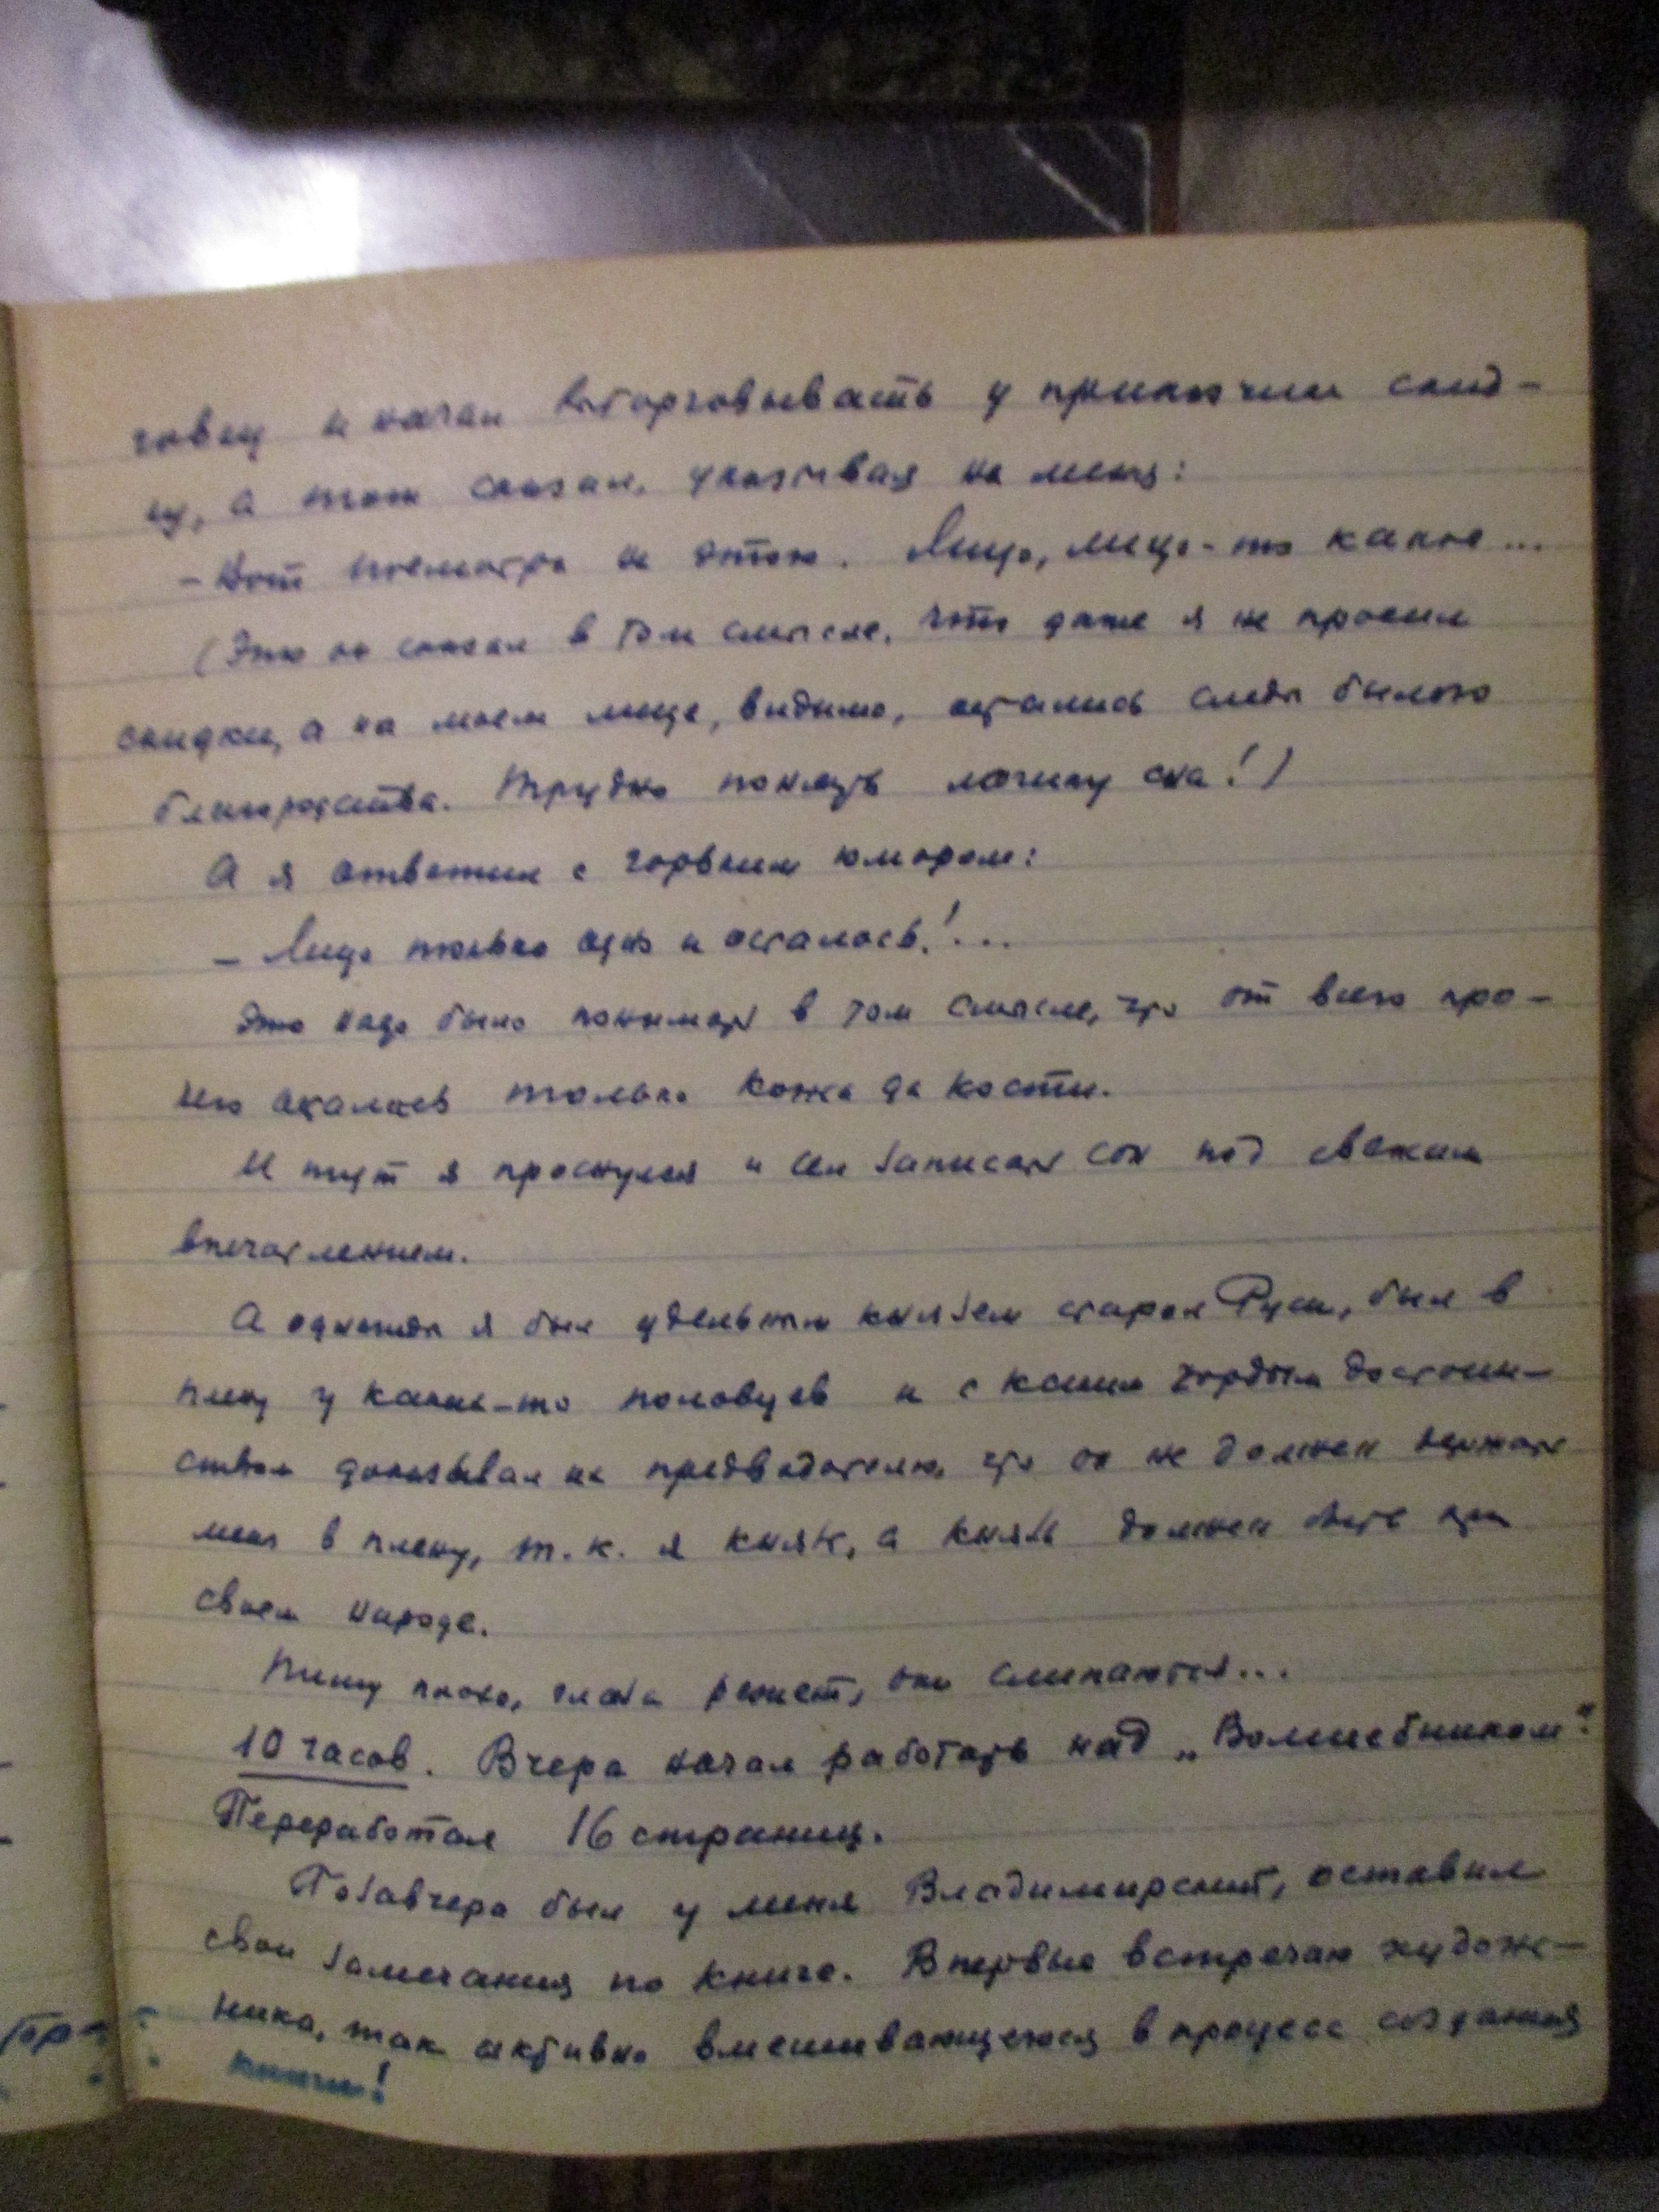 и начал выторговывать у приказчика скид-
ку, а тот сказал, указывая на меня:
– Вот посмотри на этого. Лицо, лицо-то какое...
(Это он сказал в том смысле, что даже я не просил
скидки, а на моем лице, видимо, остались следы былого
благородства. Трудно понять логику сна!)
А я ответил с горьким юмором:
– Лицо только одно и осталось!...
Это надо было понимать в том смысле, что от всего про-
чего остались только кожа да кости.
И тут я проснулся и сел записать сон под свежим
впечатлением.
А однажды я был удельным князем старой Руси, был в
плену у каких-то половцев и с каким гордым достоин-
ством доказывал их предводителю, что он не должен держать
меня в плену, т.к. я князь, а князь должен быть при
своем народе.
Пишу плохо, глаза режет, они слипаются...
10 часов. Вчера начал работать над „Волшебником".
Переработал 16 страниц.
Позавчера был у меня Владимирский, оставил
свои замечания по книге. Впервые встречаю худож-
ника, так активно вмешивающегося в процесс создания
книги!